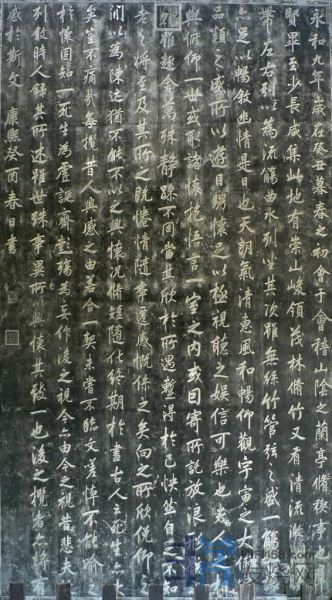 永和九年歲在癸丑暮春之初會于會稽山陰之蘭亭脩禊事也羣
賢畢至少長咸集此地有崇山峻領茂林脩竹又有清流激湍映
帶左右引以為流觴曲水列坐其次雖無絲竹管弦之盛一觴一詠
亦足以暢敘幽情是日也天朗氣清惠風和暢仰觀宇宙之大俯察
品類之盛所以遊目騁懷足以極視聽之娛信可樂也夫人之相
與俯仰一世或取諸懷抱悟言一室之內或因寄所託放浪形骸之外
雖趣舍萬殊靜躁不同當其欣於所遇蹔得於己快然自足不知
老之將至及其所之既惓情隨事遷感慨係之矣向之所欣俛仰之
間以為陳迹猶不能不以之興懷況脩短隨化終期於盡古人云死生亦大
矣豈不痛哉每攬昔人興感之由若合一契未嘗不臨文嗟悼不能喻之
於懷固知一死生為虛誕齊彭殤為妄作後之視今亦由今之視昔悲夫故
列敘時人錄其所述雖世殊事異所以興懷其致一也後之攬者亦將有
感於斯文 康熙癸酉春日書